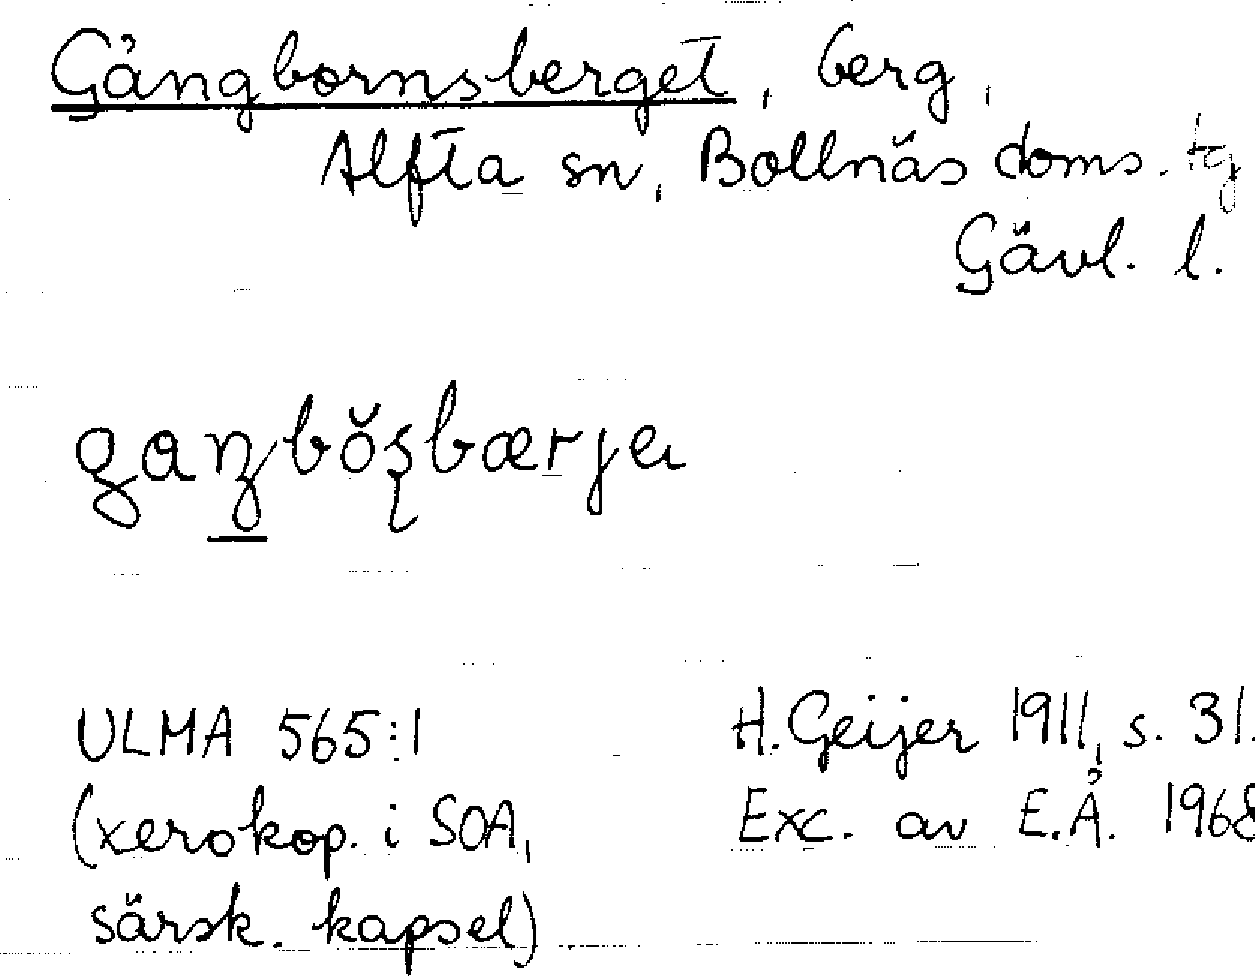 Gångbornsberget, berg,
Alfta sn, Bollnäs doms. tg
Gävl. l.
ULMA 565:1
H. Geijer 1911, s. 31.
(xerokop. i SOA,
Exc. av E.Å. 1968
särsk. kapsel)